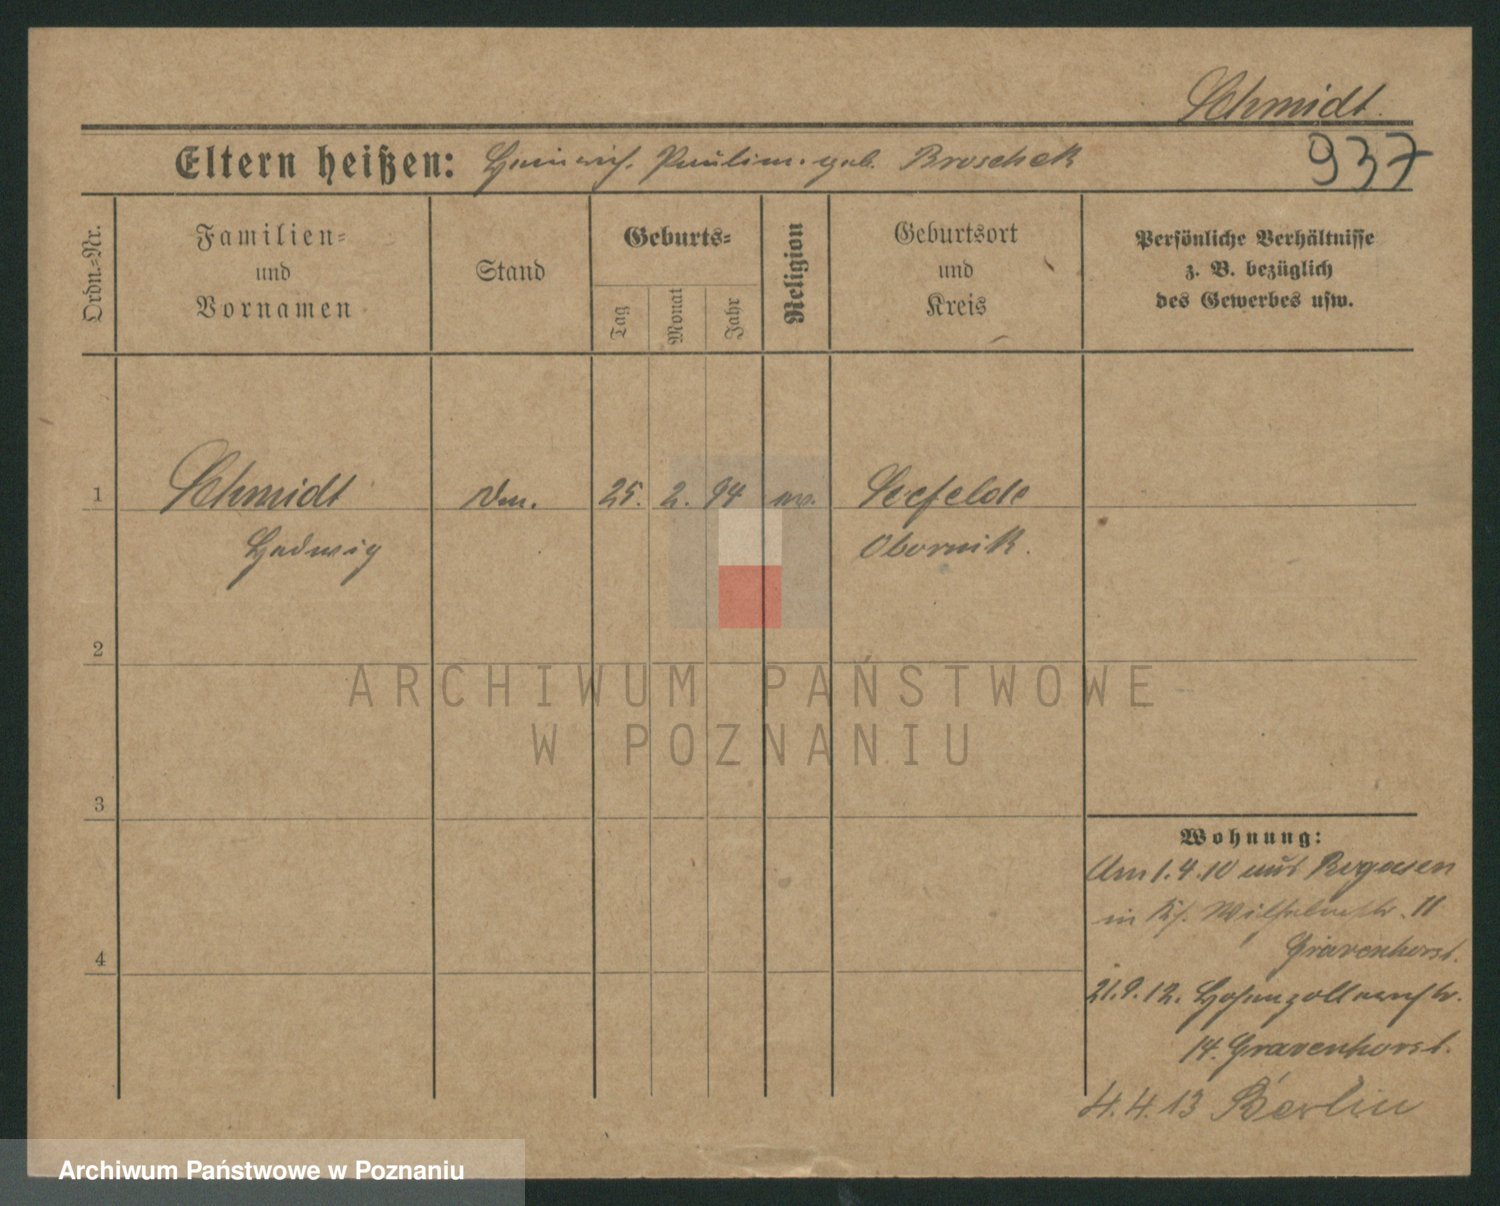 Schmidt.
Eltern heißen: Heinrich. Paulin. geb. Broschek
937
Ordn.-Nr.
Familien-
und
Vornamen
Stand
Geburts-
Tag
Monat
Jahr
Religion
Geburtsort
und
Kreis
Persönliche Verhältnisse
z. B. bezüglich
des Gewerbes usw.
1 Schmidt 25. 2. 94 ev. Seefelde
Hedwig Obornik.
2
ARCHIWUM PAŃSTWOWE
W POZNANIU
3
Wohnung:
Am 1.4.10 aus Rogasen
in Wilhelmstr. 11
Gravenhorst.
4
21.9.12. Hohenzollernstr.
14. Gravenhorst.
4.4.13 Berlin
Archiwum Państwowe w Poznaniu